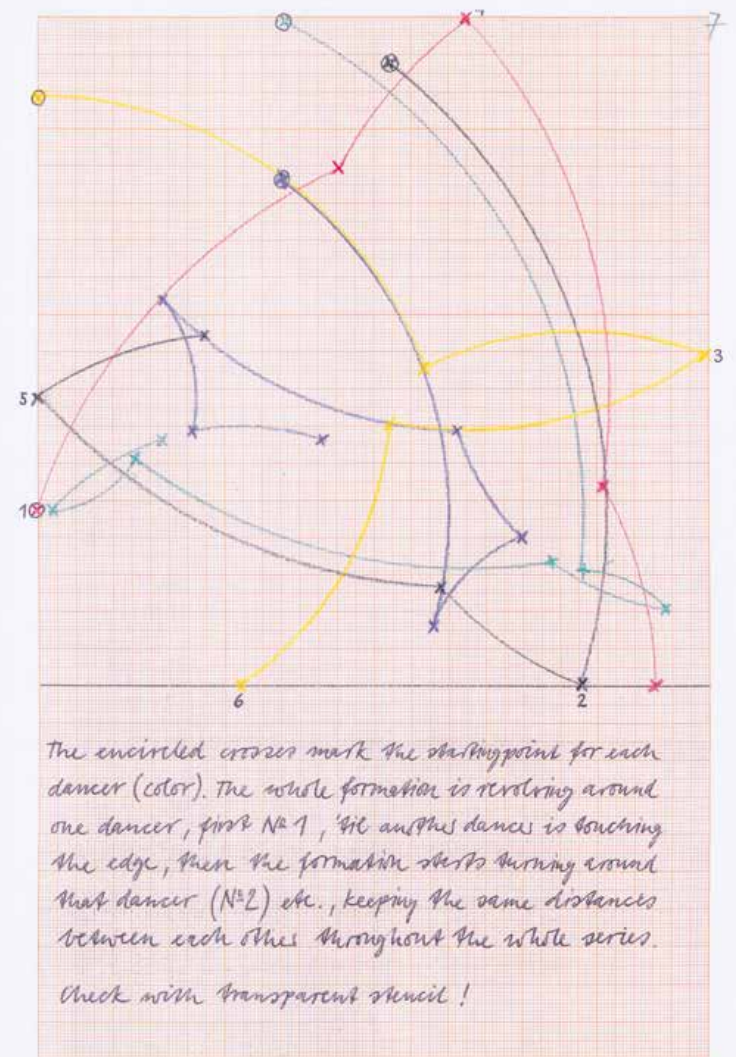 4
7
3
5
1
6
2
The encircled crosses mark the startingpoint for each
dancer (color). The whole formation is revolving around
one dancer, first № 1, 'til another dancer is touching
the edge, then the formation starts turning around
that dancer (№2) etc., keeping the same distances
between each other throughout the whole series.
Check with transparent stencil!